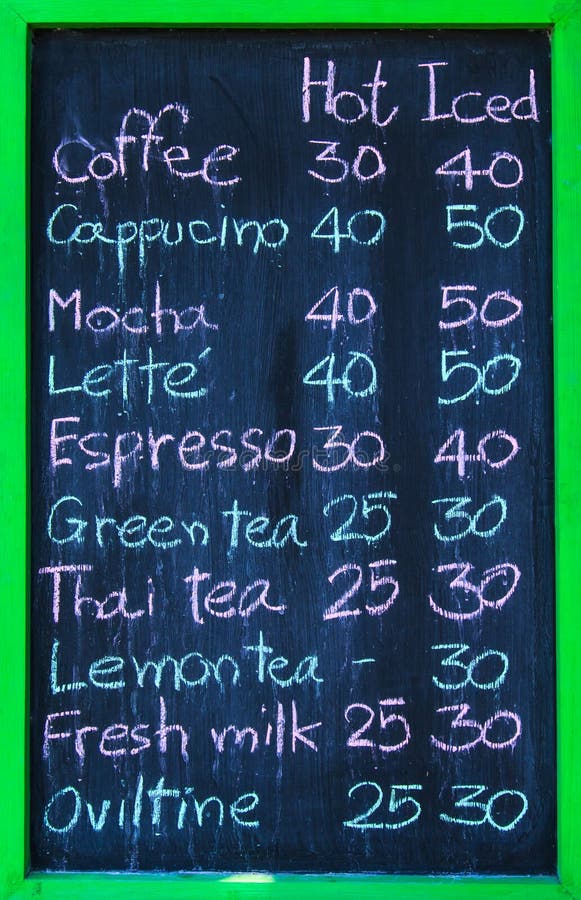 Hot Iced
Coffee 30 40
Cappucino 40 50
Mocha 40 50
Letté 40 50
Espresso 30 40
Green tea 25 30
Thai tea 25 30
Lemon tea - 30
Fresh milk 25 30
Oviltine 25 30